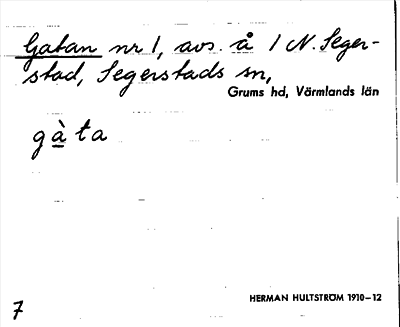 Gatan nr 1, avs. å 1 N. Seger-
stad, Segerstads sn,
Grums hd, Värmlands län
gàta
HERMAN HULTSTRÖM 1910–12
7